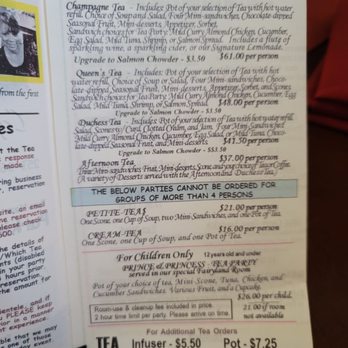 from the first
es
t the Tea
response
made.
ring business
reservation
uite, an email
he reservation
please check
500.
he details of
/Which Tea
nts (disabled
in your party
hours prior
reservation
the amount for
ientele, and if
PLEASE
ior in a manner
experience.
ible that we may
Champagne Tea - Includes: Pot of your selection of Tea with hot water
refill. Choice of Soup and Salad, Four Mini-sandwiches, Chocolate-dipped
Seasonal Fruit, Mini-desserts, Appetizer, Sorbet,
Sandwich choices for Tea Party: Mild Curry Almond Chicken, Cucumber,
Egg Salad, Mild Tuna, Shrimp, or Salmon Spread. Includes a flute of
sparkling wine, a sparkling cider, or our Signature Lemonade.
$61.00 per person
Upgrade to Salmon Chowder - $3.50
Queen's Tea - Includes: Pot of your selection of Tea with hot
water refill, Choice of Soup or Salad, Four Mini-sandwiches, Choco-
late-dipped Seasonal Fruit, Mini-desserts, Appetizer, Sorbet, and Scones.
Sandwich choices for Tea Party: Mild Curry Almond Chicken, Cucumber, Egg
Salad, Mild Tuna, Shrimp, or Salmon Spread. $48.00 per person
Upgrade to Salmon Chowder - $3.50
Duchess Tea - Includes: Pot of your selection of Tea with hot water refill,
Salad, Scones w/ Curd, Clotted Cream, and Jam. Four Mini-Sandwiches,
Mild Curry Almond Chicken, Cucumber, Egg Salad, or Mild Tuna, Choco-
late-dipped Seasonal Fruit, and Mini-desserts. $41.50 per person
Upgrade to Salmon Chowder - $3.50
$37.00 per person
Afternoon Tea
Three Mini-sandwiches, Fruit, Mini-desserts, Scone, and your choice of Tea or Coffee.
(A variety of Desserts served with the Afternoon and Duchess Tea.)
THE BELOW PARTIES CANNOT BE ORDERED FOR
GROUPS OF MORE THAN 4 PERSONS
PETITE-TEAS $21.00 per person
One Scone, one Cup of Soup, two Mini-Sandwiches, and one Pot of Tea.
CREAM-TEA $16.00 per person
One Scone, one Cup of Soup, and one Pot of Tea.
For Children Only 12 years old and under
PRINCE & PRINCESS - TEA PARTY
served in our special Fairyland Room
Pot of your choice of tea, Mini-Scone, Tuna, Chicken, and
Cucumber Sandwiches. Various Fruit, and a Cupcake.
$26.00 per child.
Room-use & cleanup fee included in price.
2 hour time limit per party. Please arrive on time.
21.00 if room
not available
For Additional Tea Orders
TEA Infuser - $5.50 Pot - $7.25